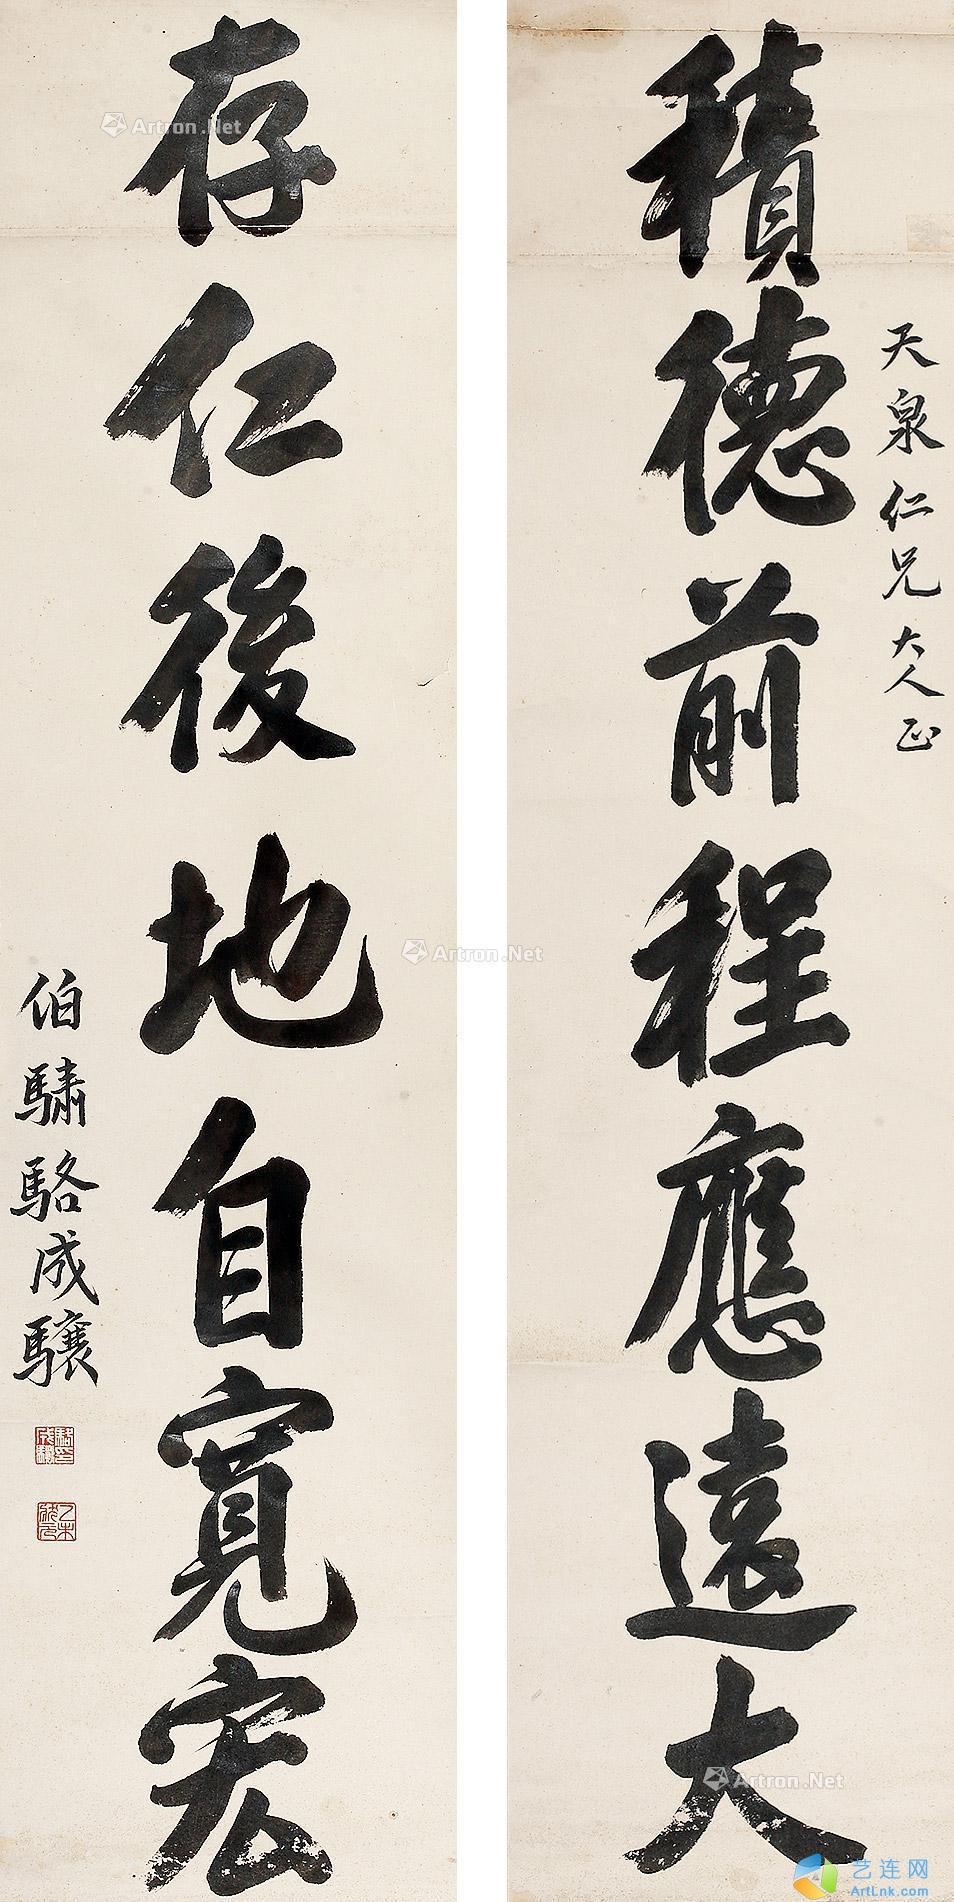 天泉仁兄大人正
積德前程應遠大
存仁後地自寬宏
伯驌駱成驤
駱成驤印
乙未狀元
Artron.Net
Artron.Net
Artron.Net
艺连网
ArtLnk.com